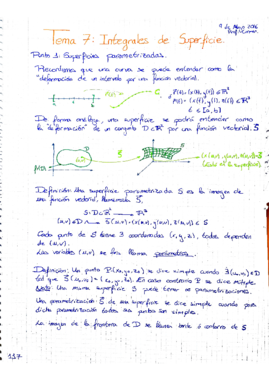 9 de Mayo 2016
Tema 7: Integrales de Superficie.
Punto 1: Superficies parametrizadas.
Recordemos que una curva se puede entender como la
"deformación de un intervalo por una función vectorial.
P(t) = (x(t), y(t)) ∈ ℝ²
P(t) = (x(t), y(t), z(t)) ∈ ℝ³
t ∈ [a, b]
De forma análoga, una superficie se podrá entender como
la "deformación" de un conjunto D⊂ℝ² por una función vectorial S
D
S
Definición: Una superficie parametrizada S es la imagen de
una función vectorial. Llamémosla S̄.
S̄: D⊂ℝ² → ℝ³
(u,v)∈D → S̄(u,v) = (x(u,v), y(u,v), z(u,v)) ∈ S
Cada punto de S tiene 3 coordenadas (x, y, z), todas dependen
de (u,v).
Las variables (u,v) se les llama parámetros.
Definición: Un punto P(x₀, y₀, z₀) se dice simple cuando ∃(u₀, v₀) ∈ D
tal que S̄(u₀, v₀) = (x₀, y₀, z₀). En caso contrario P se dice múltiple.
Nota: Una misma superficie S puede tener ∞ parametrizaciones.
Una parametrización S̄ de una superficie se dice simple cuando para
dicha parametrización todos sus puntos son simples.
La imagen de la frontera de D se llama borde o contorno de S
117